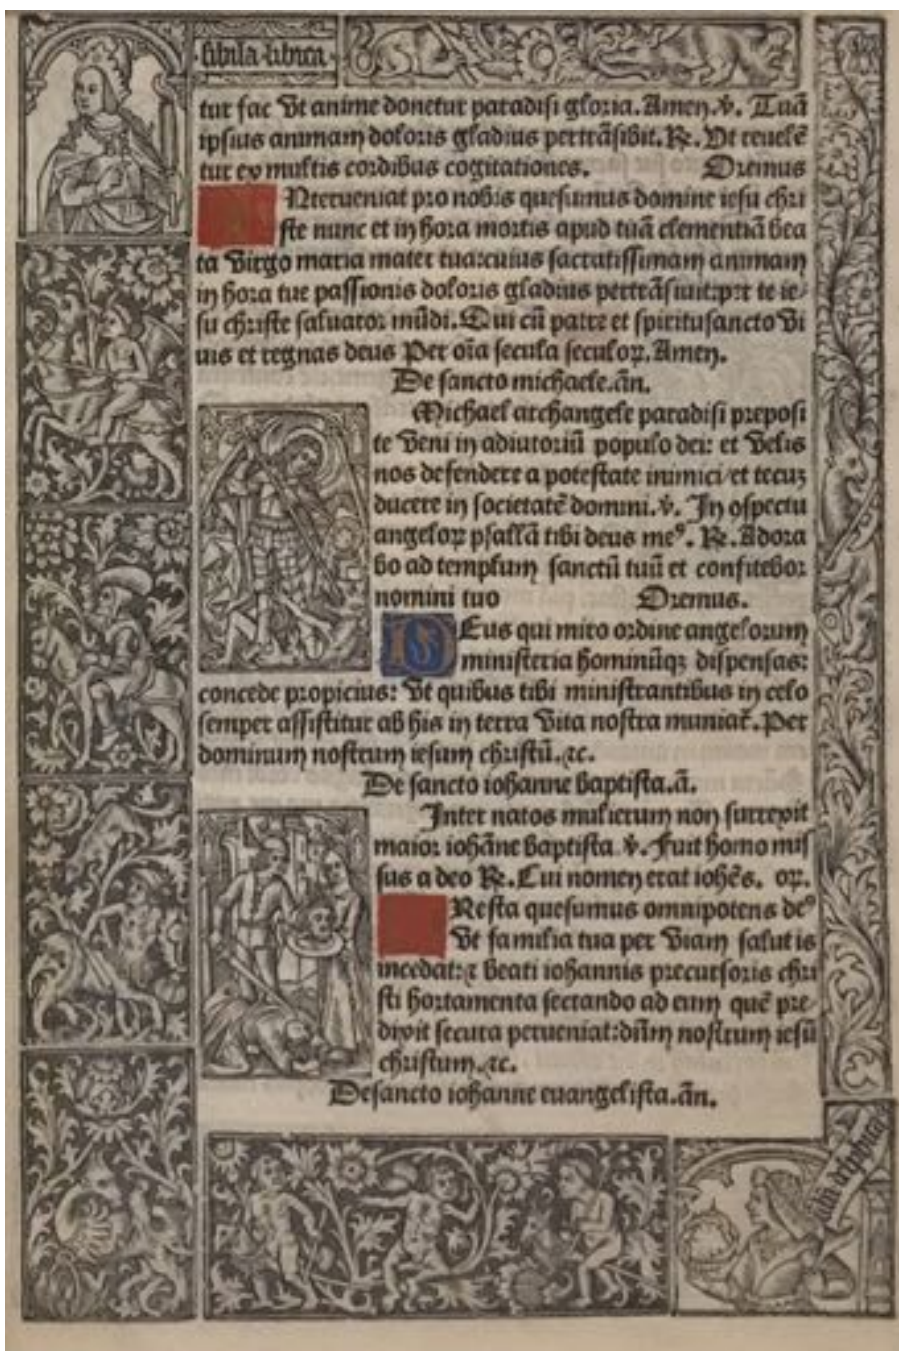 sibila libica
tur fac Vt anime donetur paradisi gloria. Amen. ℣. Tuā
ipsius animam doloris gladius pertrāsibit. ℟. Vt reuelē
tur ex multis cordibus cogitationes. Oremus
Nterueniat pro nobis quesumus domine iesu chri
ste nunc et in hora mortis apud tuā clementiā bea
ta Virgo maria mater tua:cuius sacratissimam animam
in hora tue passionis doloris gladius pertrāsiuit:per te ie-
su christe saluator mūdi. Qui cū patre et spiritusancto Vi
uis et regnas deus Per oīa secula seculoꝝ. Amen.
De sancto michaele. añ.
Michael archangele paradisi preposi
te Veni in adiutoriū populo dei: et Velis
nos defendere a potestate inimici/et tecuꝫ
ducere in societatē domini. ℣. In ꝯspectu
angeloꝝ psallā tibi deus meꝰ. ℟. Adora
bo ad templum sanctū tuū et confitebor
nomini tuo Oremus.
DEus qui miro ordine angelorum
ministeria hominūqꝫ dispensas:
concede propicius: Vt quibus tibi ministrantibus in celo
semper assistitur ab his in terra Vita nostra muniat̄. Per
dominum nostrum iesum christū. ⁊c.
De sancto iohanne baptista. ā.
Inter natos mulierum non surrexit
maior iohāne baptista ℣. Fuit homo mis
sus a deo ℟. Cui nomen erat iohēs. oꝝ.
Resta quesumus omnipotens deꝰ
Vt familia tua per Viam salutis
incedat:⁊ beati iohannis precursoris chri
sti hortamenta sectando ad eum quē pre-
dixit secura perueniat:dūm nostrum iesū
christum. ⁊c.
De sancto iohanne euangelista. añ.
delphica